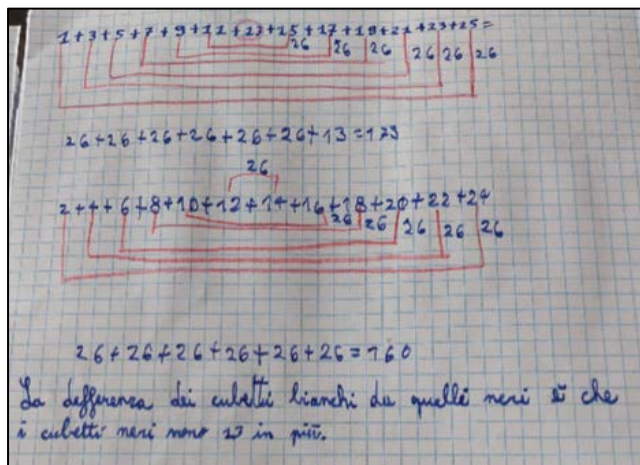 1+3+5+7+9+11+13+15+17+19+21+23+25=
26 26 26 26 26 26
26+26+26+26+26+26+13=173
26
2+4+6+8+10+12+14+16+18+20+22+24
26 26 26 26 26
26+26+26+26+26+26=160
La defferenza dei cubetti bianchi da quelli neri è che
i cubetti neri nono 13 in più.